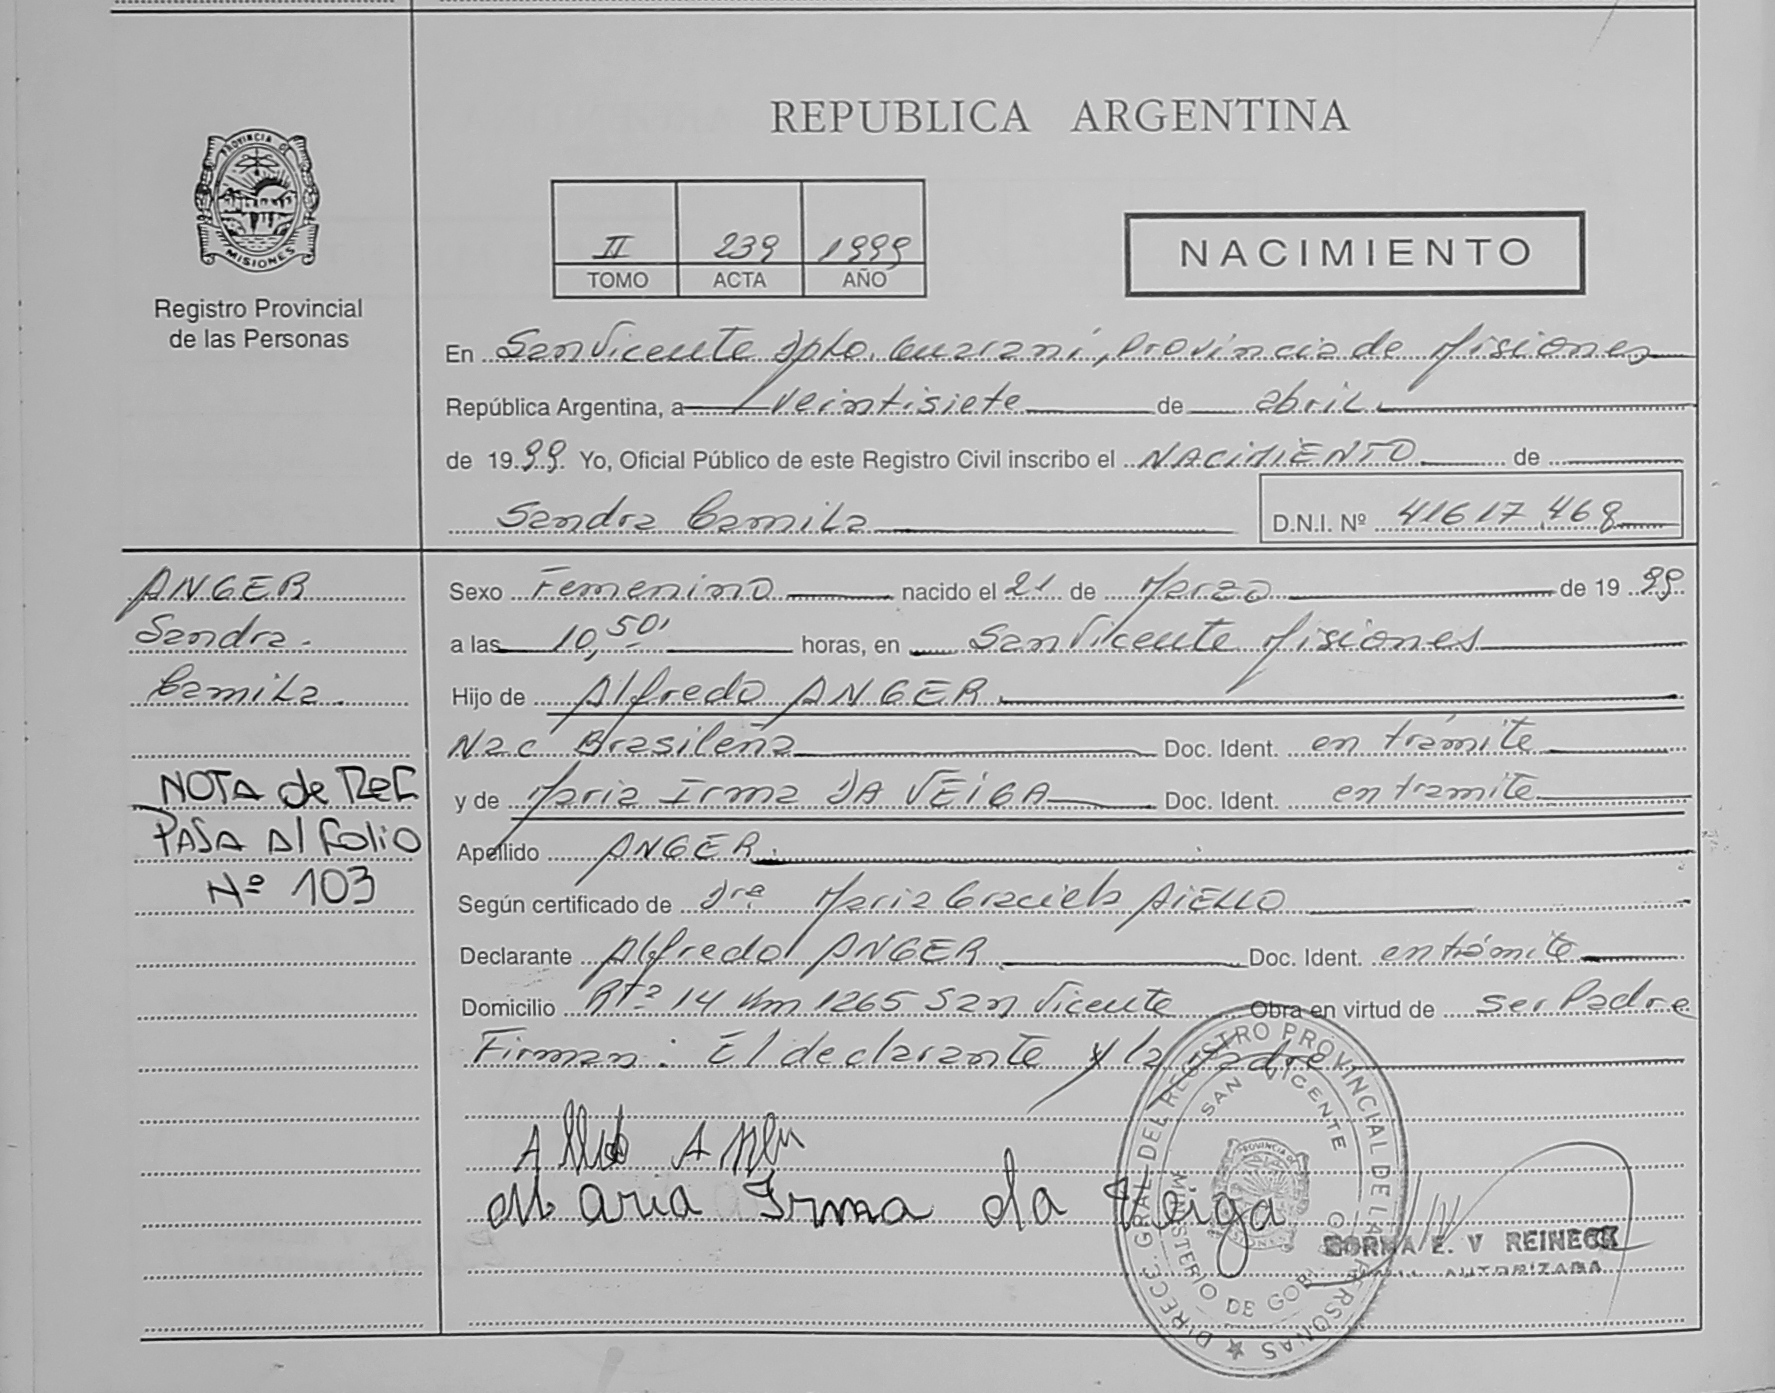 REPUBLICA ARGENTINA
PROVINCIA DE
MISIONES
Registro Provincial
de las Personas
II 239 1999
TOMO ACTA AÑO
NACIMIENTO
En San Vicente Dpto. Guaraní, Provincia de Misiones
República Argentina, a veintisiete de abril
de 1999 Yo, Oficial Público de este Registro Civil inscribo el NACIMIENTO de
Sandra Camila D.N.I. Nº 41617.468
ANGER
Sandra.
Camila.
NOTA de REC
PASA Al folio
Nº 103
Sexo Femenino nacido el 21 de Marzo de 1999
a las 10,50' horas, en San Vicente Misiones
Hijo de Alfredo ANGER.
Nac Brasileña Doc. Ident. en trámite
y de Maria Irma DA VEIGA Doc. Ident. en tramite
Apellido ANGER.
Según certificado de Dra Maria Graciela AIELLO
Declarante Alfredo ANGER Doc. Ident. en trámite
Domicilio Rta 14 Km 1265 San Vicente Obra en virtud de ser Padre
Firman: El declarante y la Madre
Maria Irma da Veiga
DIRECC. GRAL. DEL REGISTRO PROVINCIAL DE LAS PERSONAS
SAN VICENTE
MINISTERIO DE GOB.
PROVINCIA DE
MISIONES
E. V REINECK
AUTORIZADA